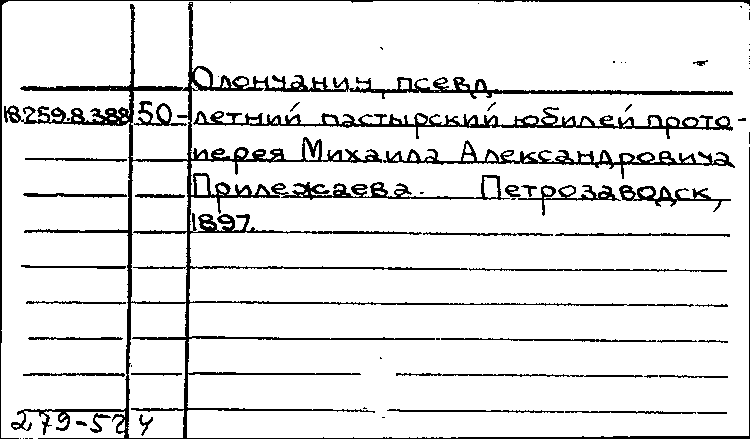 Олончанин, псевд.
18.259.8.388 50-летний пастырский юбилей прото-
иерея Михаила Александровича
Прилежаева. Петрозаводск,
1897.
279-52